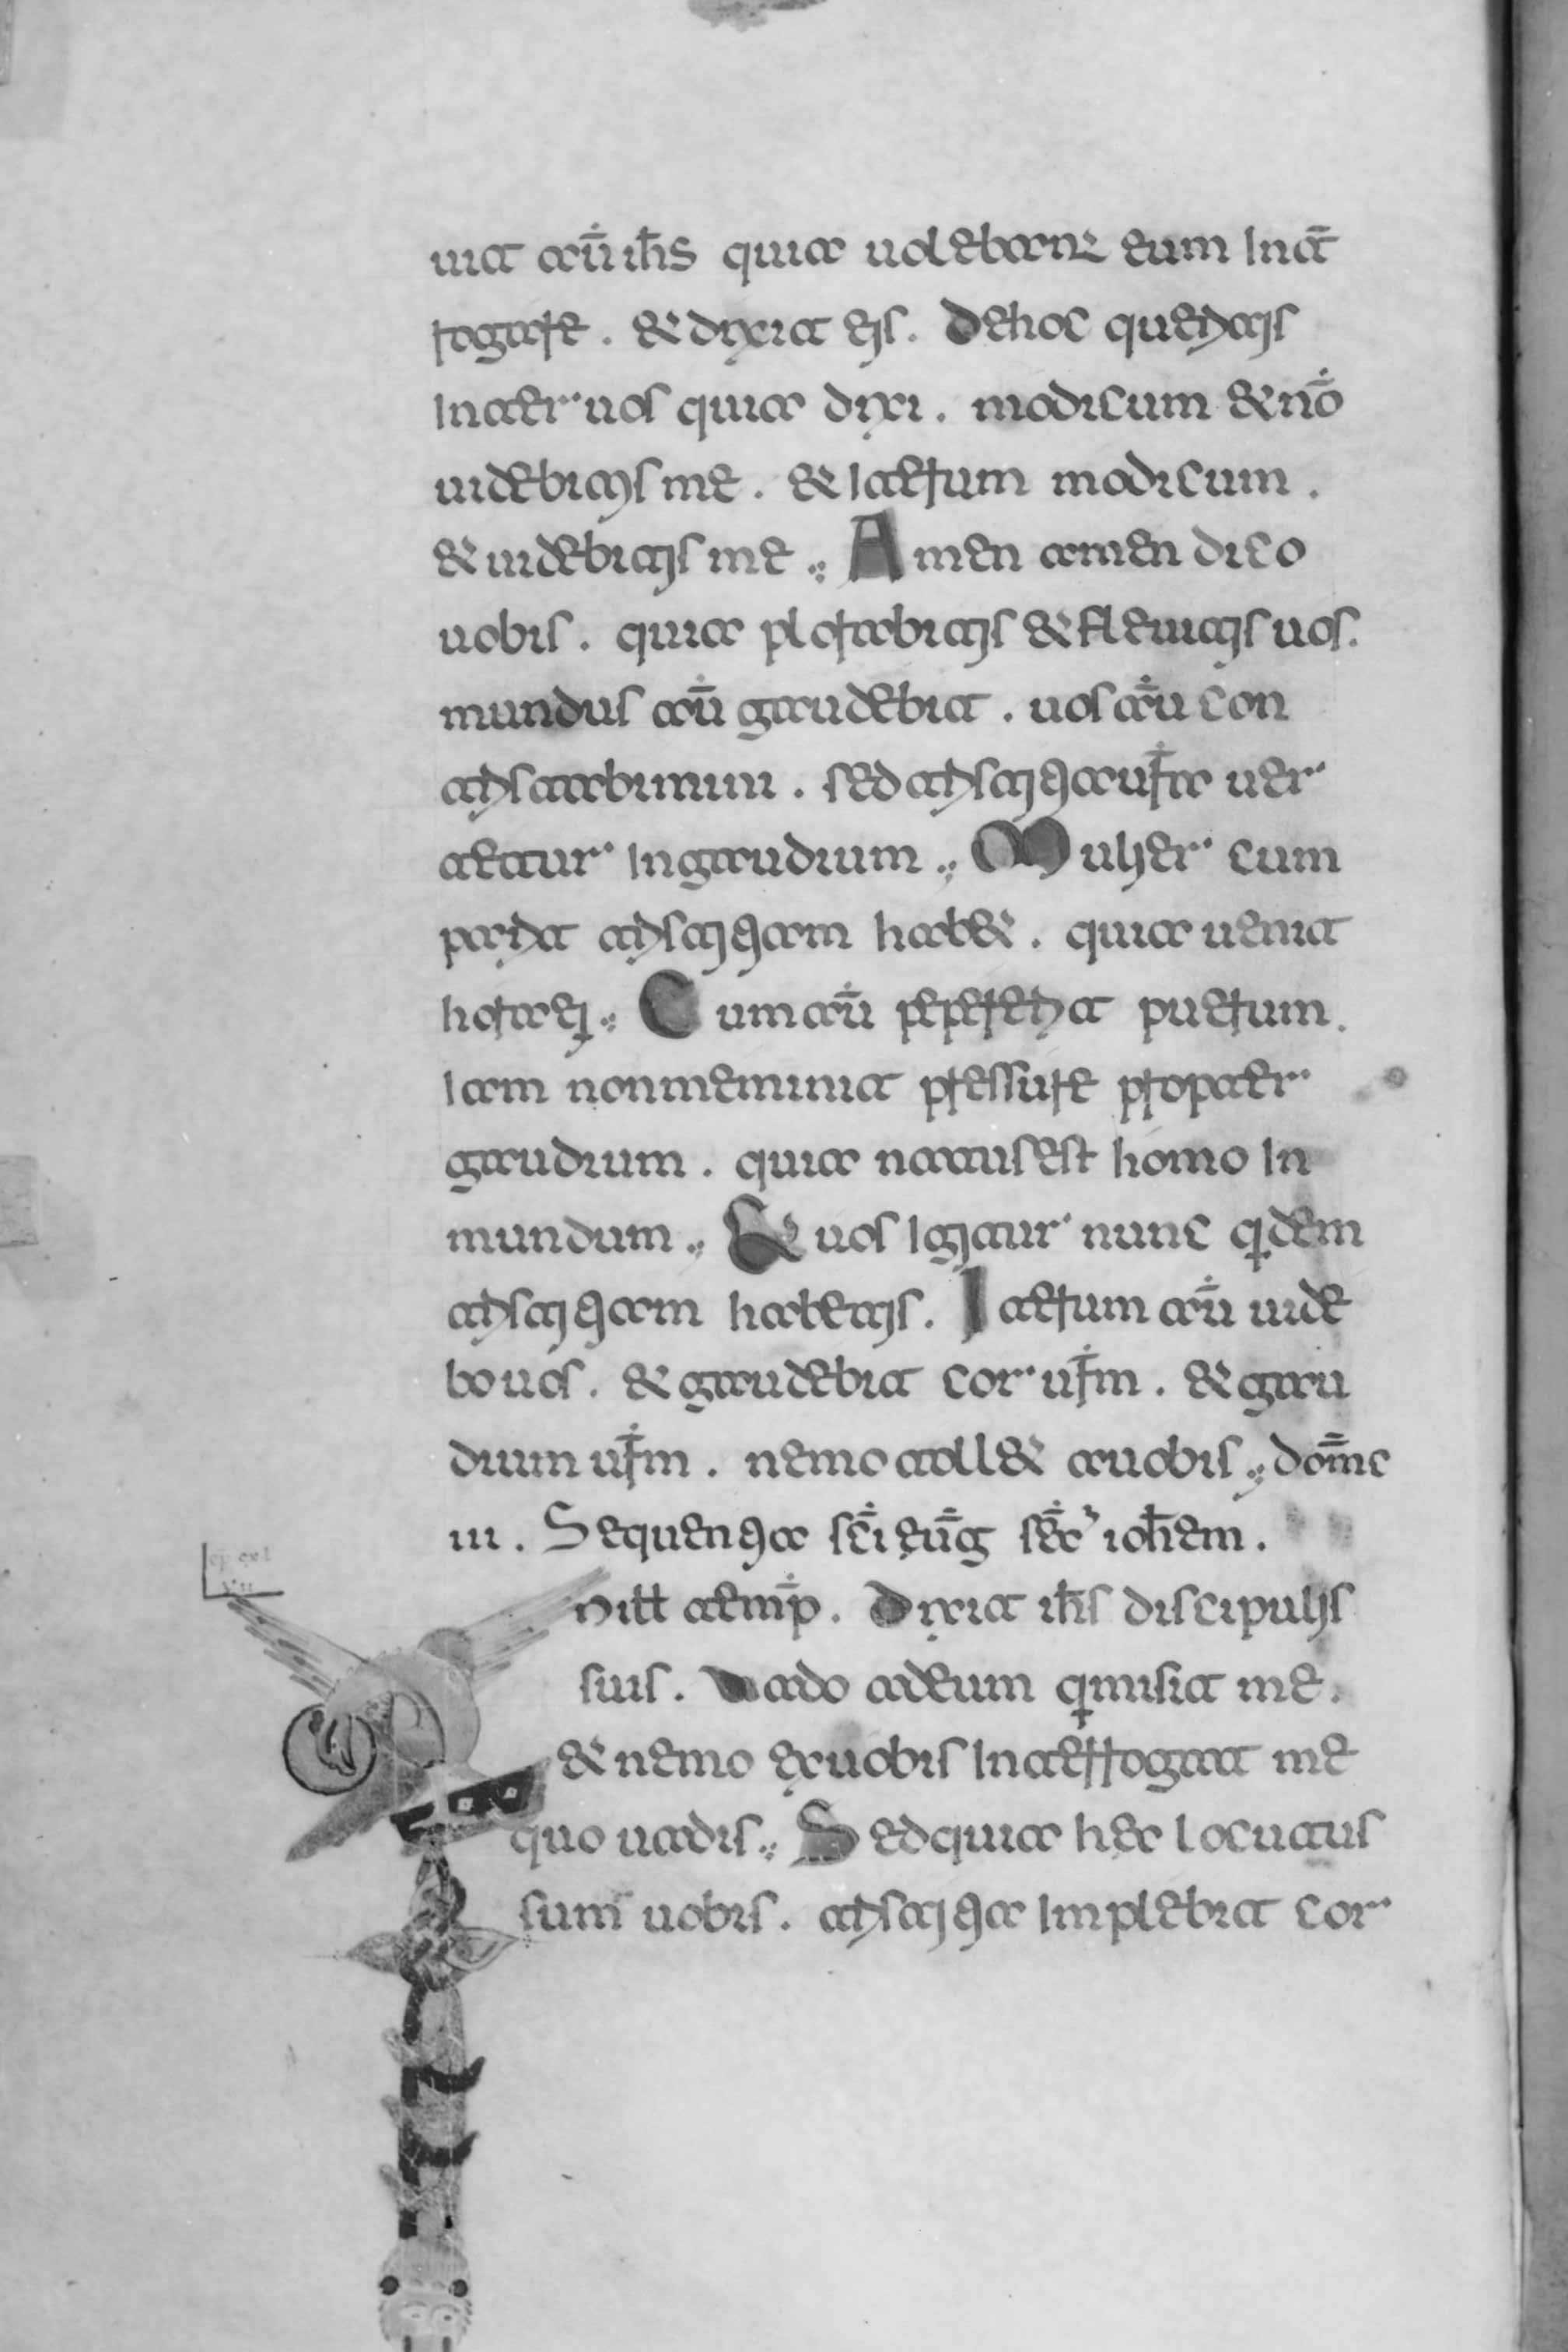 uit aū ihs quia uolebant eum int̄
rogare. & dixit eis. De hoc queritis
inter uos quia dixi. modicum & nō
uidebitis me. & iterum modicum.
& uidebitis me. Amen amen dico
uobis. quia plorabitis & flebitis uos.
mundus aū gaudebit. uos aū con
tristabimini. sed tristitia ur̄a uer
tetur in gaudium. Mulier cum
parit tristitiam hab&. quia uenit
hora ei. Cum aū pepererit puerum.
Iam non meminit pressure propter
gaudium. quia natus est homo in
mundum. Et uos igitur nunc qdem
tristitiam habetis. Iterum aū uide
bo uos. & gaudebit cor ur̄m. & gau
dium ur̄m. nemo toll& a uobis. dom̄c
iii. Sequentia sc̄i eūg sēc ioh̄em.
N ill temp̄. Dixit ihs discipulis
suis. Vado ad eum q misit me.
& nemo ex uobis interrogat me
quo uadis. Sed quia hec locutus
sum uobis. tristitia implebit cor